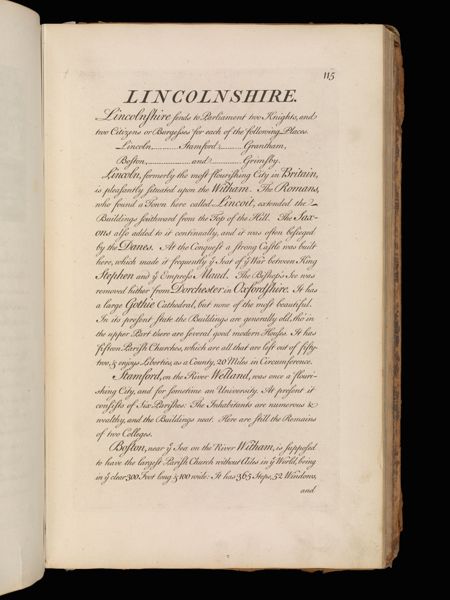 115
LINCOLNSHIRE.
Lincolnshire sends to Parliament two Knights, and
two Citizens or Burgesses for each of the following Places.
Lincoln, Stamford, Grantham,
Boston, and Grimsby.
Lincoln, formerly the most flourishing City in Britain,
is pleasantly situated upon the Witham. The Romans,
who found a Town here called Lincoit, extended the
Buildings southward from the Top of the Hill. The Sax-
ons also added to it continually, and it was often besieged
by the Danes. At the Conquest a strong Castle was built
here, which made it frequently ye Seat of ye War between King
Stephen and ye Empress Maud. The Bishop's See was
removed hither from Dorchester in Oxfordshire. It has
a large Gothic Cathedral, but none of the most beautiful.
In its present state the Buildings are generally old, tho' in
the upper Part there are several good modern Houses. It has
fifteen Parish Churches, which are all that are left out of fifty-
two, & enjoys Liberties, as a County, 20 Miles in Circumference.
Stamford, on the River Welland, was once a flouri-
shing City, and for sometime an University. At present it
consists of Six Parishes: The Inhabitants are numerous &
wealthy, and the Buildings neat. Here are still the Remains
of two Colleges.
Boston, near ye Sea on the River Witham, is supposed
to have the largest Parish Church without Ailes in ye World, being
in ye clear 300 Feet long & 100 wide: It has 365 Steps, 52 Windows,
and